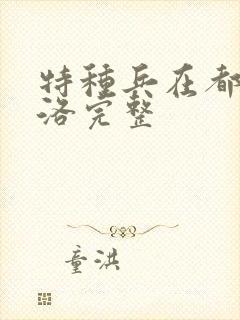 特種兵在都
洛完整
童洪